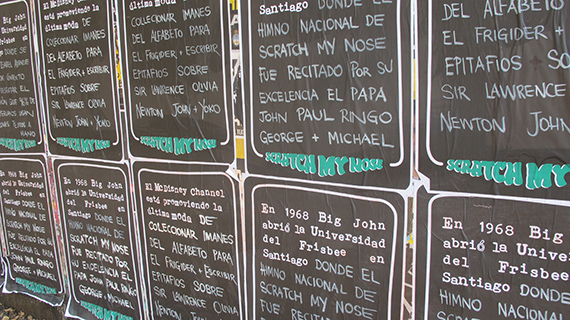 McDisney Channel
está promoviendo la
última moda DE
COLECCIONAR IMANES
DEL ALFABETO PARA
EL FRIGIDER + ESCRIBIR
EPITAFIOS SOBRE
SIR LAWRENCE OLIVIA
NEWTON JOHN + YOKO
SCRATCH MY NOSE
última moda DE
COLECCIONAR IMANES
DEL ALFABETO PARA
EL FRIGIDER + ESCRIBIR
EPITAFIOS SOBRE
SIR LAWRENCE OLIVIA
NEWTON JOHN + YOKO
SCRATCH MY NOSE
Santiago DONDE EL
HIMNO NACIONAL DE
SCRATCH MY NOSE
FUE RECITADO POR SU
EXCELENCIA EL PAPA
JOHN PAUL RINGO
GEORGE + MICHAEL
SCRATCH MY NOSE
DEL ALFABETO
EL FRIGIDER +
EPITAFIOS SOB
SIR LAWRENCE
NEWTON JOHN
SCRATCH MY
1968 Big John
la Universidad
del Frisbee en
Santiago DONDE EL
HIMNO NACIONAL DE
SCRATCH MY NOSE
RECITADO POR SU
EXCELENCIA EL PAPA
JOHN PAUL RINGO
GEORGE + MICHAEL
En 1968 Big John
abrió la Universidad
del Frisbee en
Santiago DONDE EL
HIMNO NACIONAL DE
SCRATCH MY NOSE
FUE RECITADO POR
SU EXCELENCIA EL PAPA
JOHN PAUL RINGO
GEORGE + MICHAEL
El McDisney Channel
está promoviendo la
última moda DE
COLECCIONAR IMANES
DEL ALFABETO PARA
EL FRIGIDER + ESCRIBIR
EPITAFIOS SOBRE
SIR LAWRENCE OLIVIA
NEWTON JOHN + YOKO
En 1968 Big John
abrió la Universidad
del Frisbee en
Santiago DONDE EL
HIMNO NACIONAL DE
SCRATCH MY NOSE
FUE RECITADO POR SU
En 1968 Big
abrió la Unive
del Frisbe
Santiago DONDE
HIMNO NACIONAL
SCRATCH MY NOS